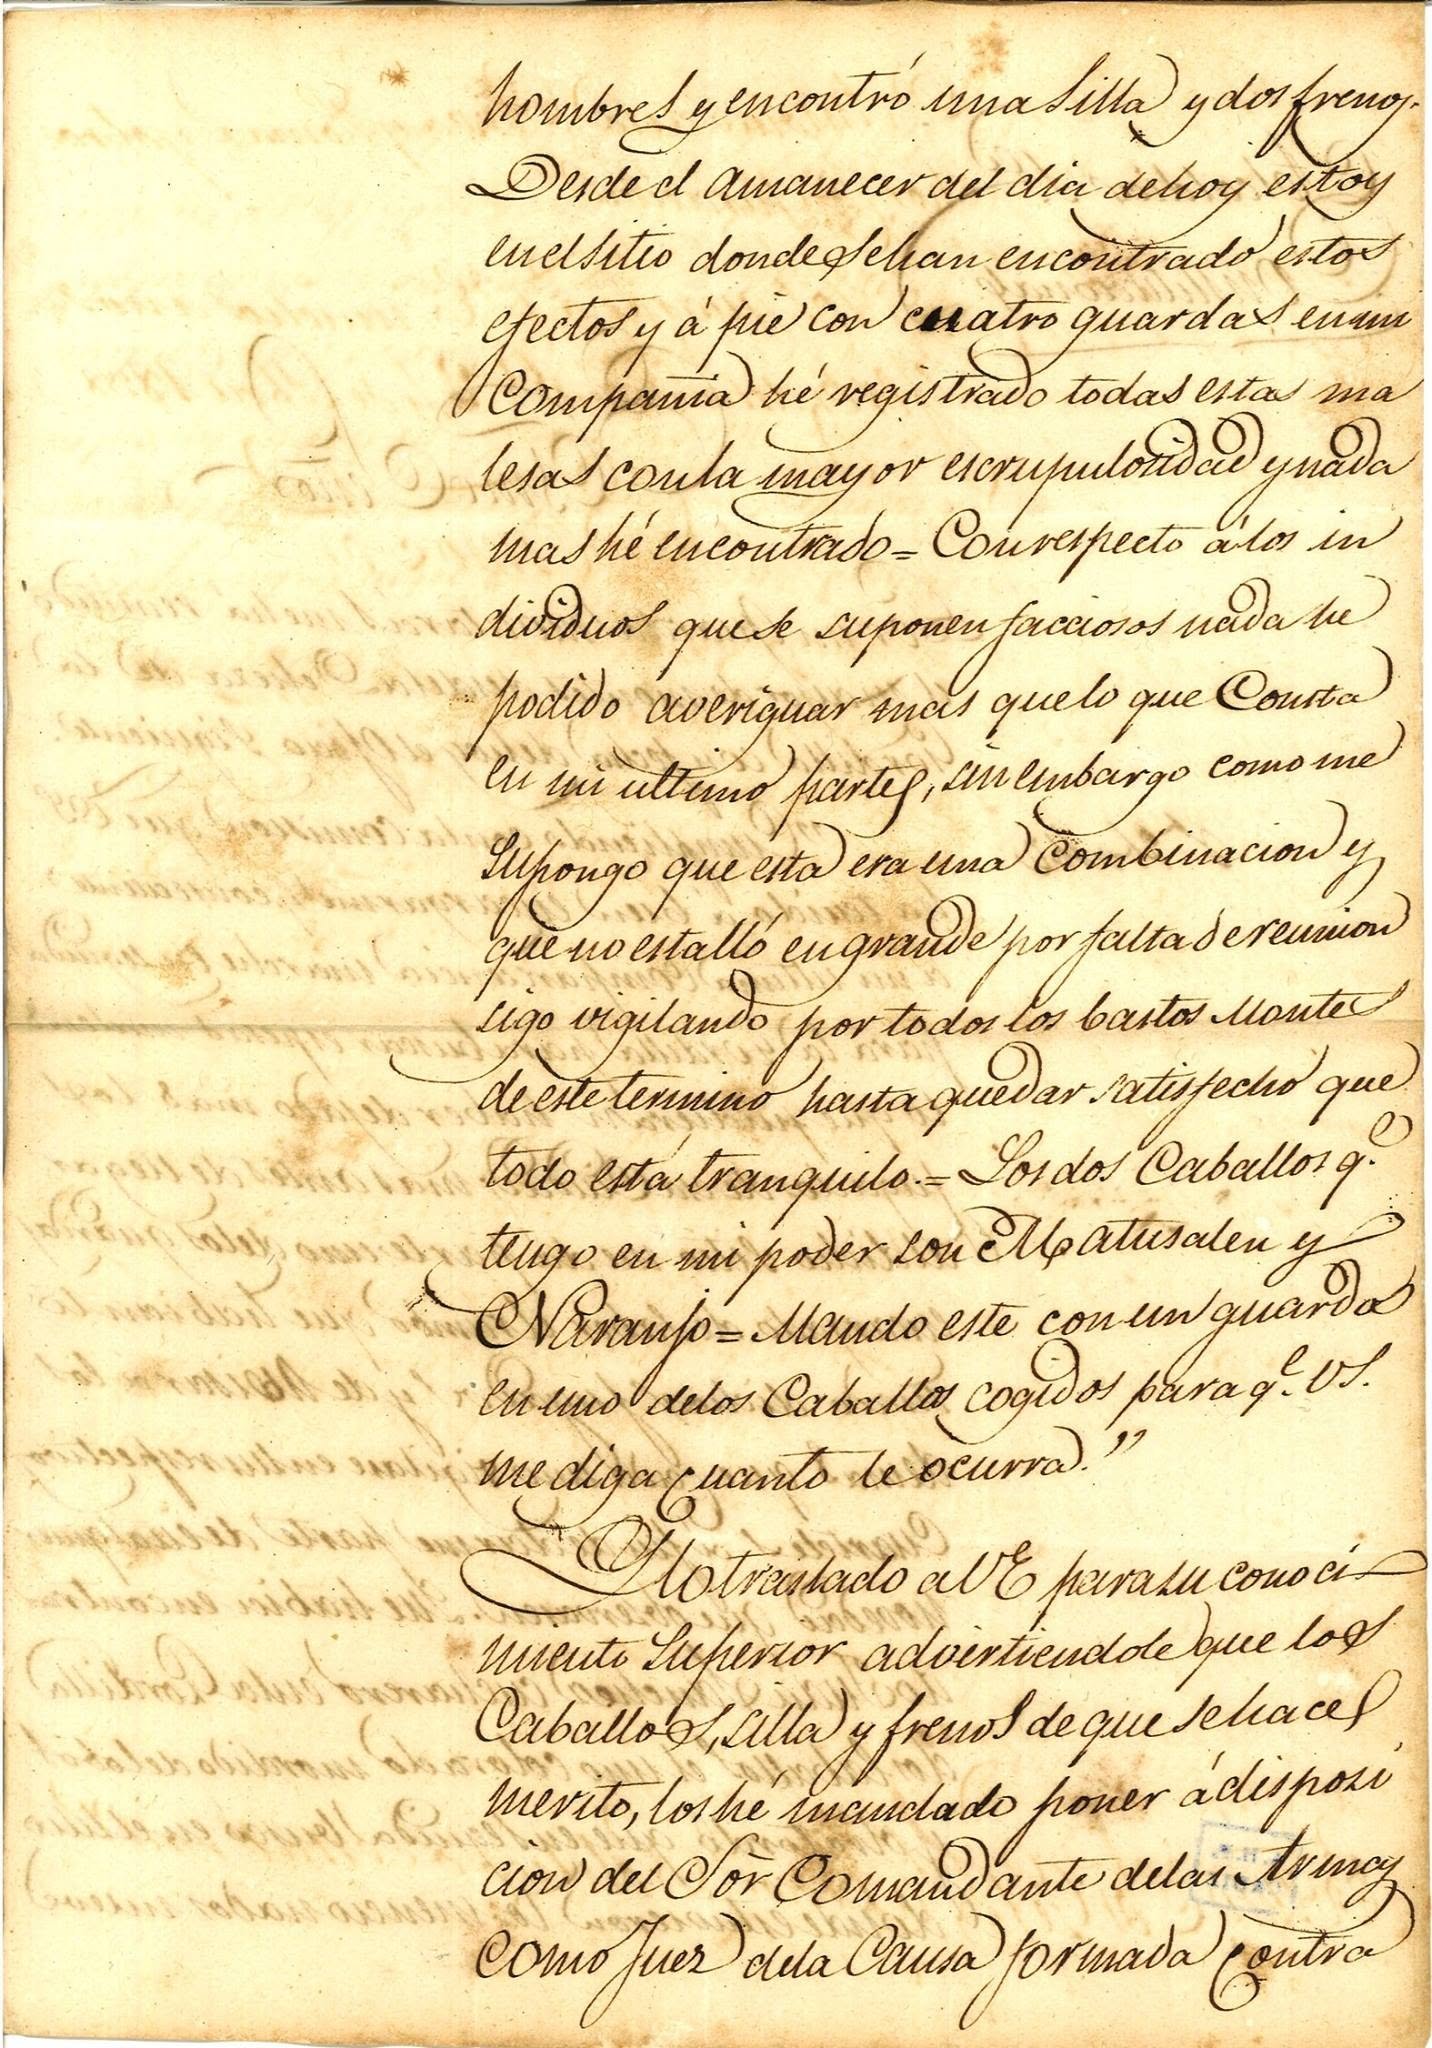 hombres y encontró una Silla y dos frenos.
Desde el amanecer del dia de hoy estoy
en el sitio donde se han encontrado estos
efectos y á pie con cuatro guardas en mi
Compañia hé registrado todas estas ma
lesas con la mayor escrupulosidad y nada
mas hé encontrado = Con respecto á los in
dividuos que se suponen facciosos nada he
podido averiguar mas que lo que Consta
en mi ultimo parte, sin embargo como me
supongo que esta era una Combinacion y
que no estalló en grande por falta de reunion
sigo vigilando por todos los bastos Montes
de este termino hasta quedar satisfecho que
todo está tranquilo. = Los dos Caballos q.e
tengo en mi poder son Matusalen y
Naranjo = Mando este con un guarda
en uno de los Caballos cogidos para q.e VS.
me diga cuanto le ocurra."
Y lo traslado a VE para su conoci-
miento Superior advirtiendole que los
Caballos, silla y frenos de que se hace
merito, los hé mandado poner á disposi
cion del Sor Comandante de las Armas
como Juez de la Causa formada contra